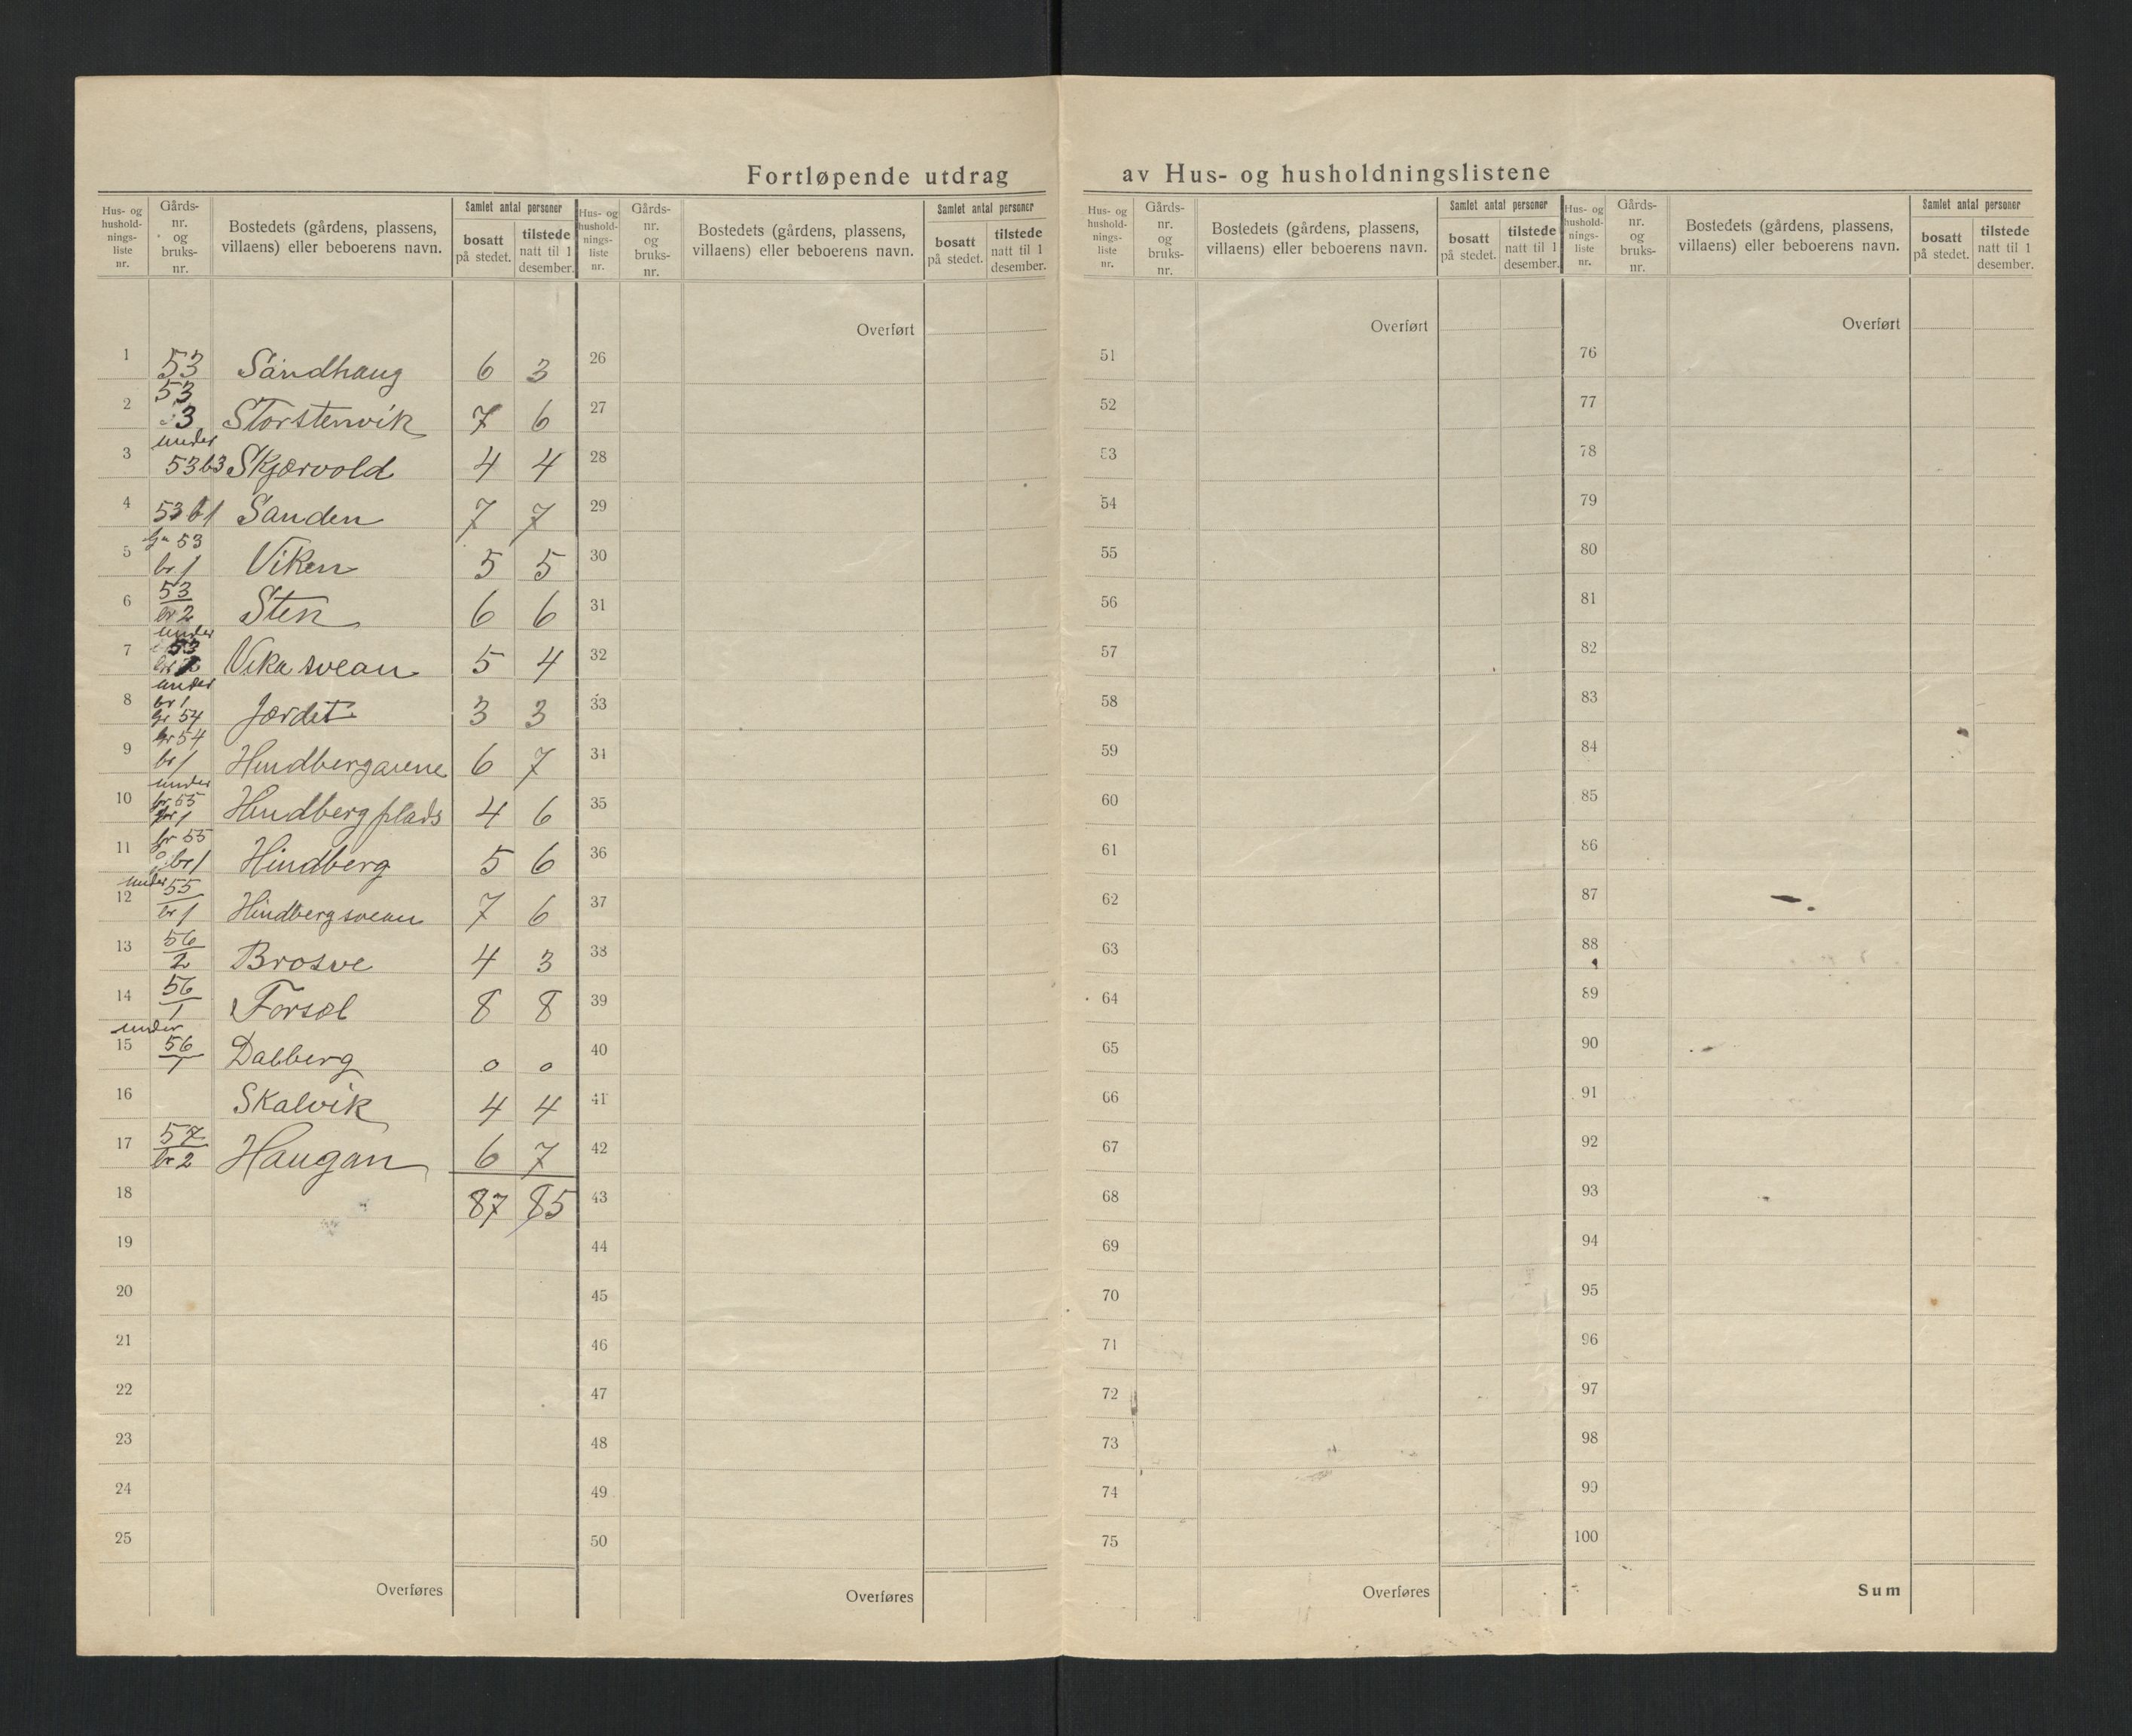 Fortløpende utdrag av Hus- og husholdningslistene
Hus- og hushold- nings- liste nr. Gårds- nr. og bruks- nr. Bostedets (gårdens, plassens, villaens) eller beboerens navn. Samlet antal personer bosatt på stedet. tilstede natt til 1 desember.
1 53 Sandhaug 6 3
2 53 3 Storstenvik 7 6
3 under 53 b3 Skjærvold 4 4
4 53 b1 Sanden 7 7
5 53 br. 1 Viken 5 5
6 53 br 2 Sten 6 6
7 under 53 Vikasvean 5 4
8 under br 1 gr 54 Jordet 3 3
9 gr 54 br 1 6 7
10 under 55 Hindberg plads 4 6
11 55 br 1 Hindberg 5 6
12 under 55 br 1 Hindbergsvean 7 6
13 56 2 Brosve 4 3
14 56 1 Forsol 8 8
15 under 56 1 Dalberg 0 0
16 Skalvik 4 4
17 57 br 2 Haugan 6 7
18 87 85
19
20
21
22
23
24
25
Overføres
Hus- og hushold- nings- liste nr. Gårds- nr. og bruks- nr. Bostedets (gårdens, plassens, villaens) eller beboerens navn. Samlet antal personer bosatt på stedet. tilstede natt til 1 desember.
Overført
26
27
28
29
30
31
32
33
34
35
36
37
38
39
40
41
42
43
44
45
46
47
48
49
50
Overføres
Hus- og hushold- nings- liste nr. Gårds- nr. og bruks- nr. Bostedets (gårdens, plassens, villaens) eller beboerens navn. Samlet antal personer bosatt på stedet. tilstede natt til 1 desember.
Overført
51
52
53
54
55
56
57
58
59
60
61
62
63
64
65
66
67
68
69
70
71
72
73
74
75
Overføres
Hus- og hushold- nings- liste nr. Gårds- nr. og bruks- nr. Bostedets (gårdens, plassens, villaens) eller beboerens navn. Samlet antal personer bosatt på stedet. tilstede natt til 1 desember.
Overført
76
77
78
79
80
81
82
83
84
85
86
87
88
89
90
91
92
93
94
95
96
97
98
99
100
Sum